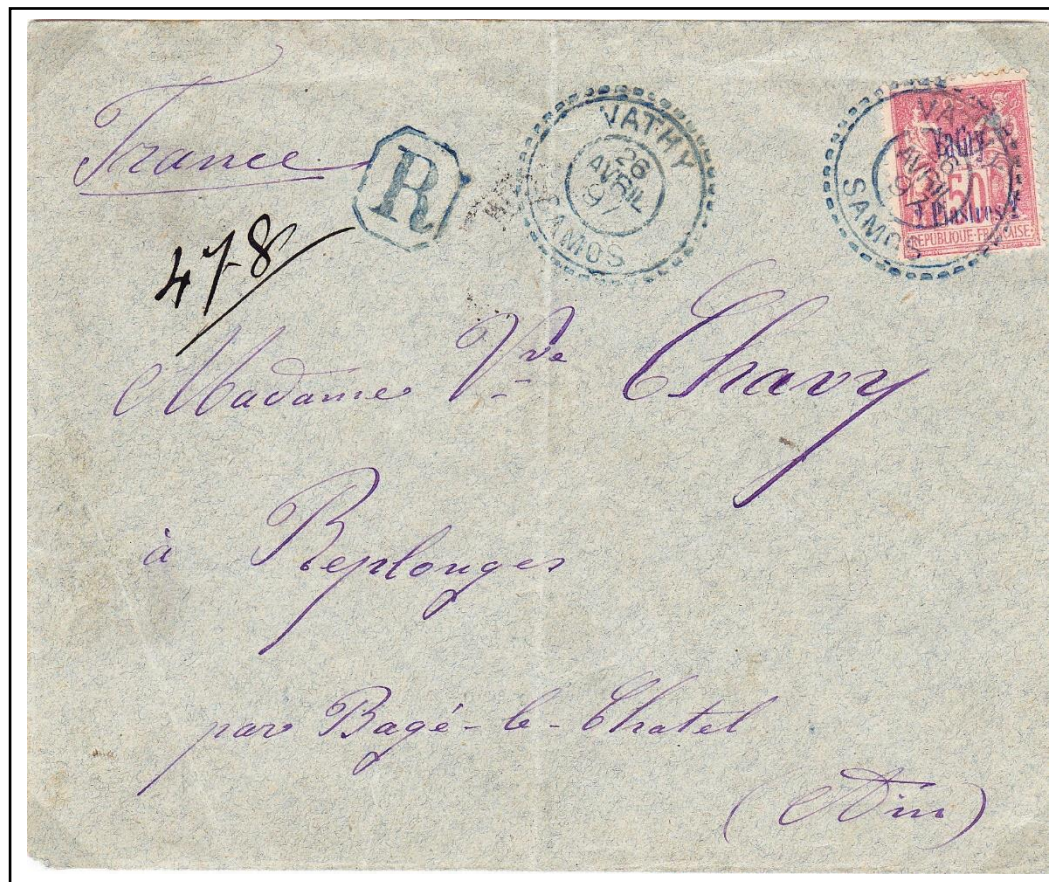 France
R
VATHY
26
AVRIL
97
SAMOS
VATHY
26
AVRIL
97
SAMOS
Vathy
50
2 Piastres 2
REPUBLIQUE FRANÇAISE
478
Madame Vve Chavy
à Replonges
par Bagé-le-Chatel
(Ain)